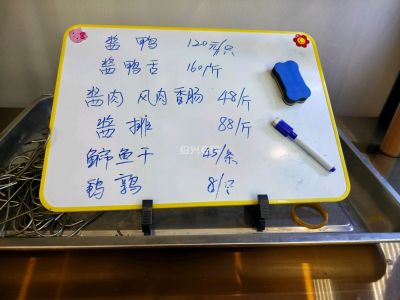 酱鸭 120元/只
酱鸭舌 160/斤
酱肉 风肉 香肠 48/斤
酱排 88/斤
鳊鱼干 45/条
鹌鹑 8/只